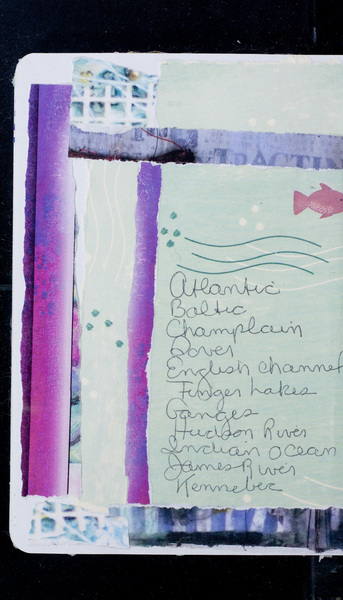 Atlantic
Baltic
Champlain
Dover
English Channel
Finger Lakes
Ganges
Hudson River
Indian Ocean
James River
Kennebec